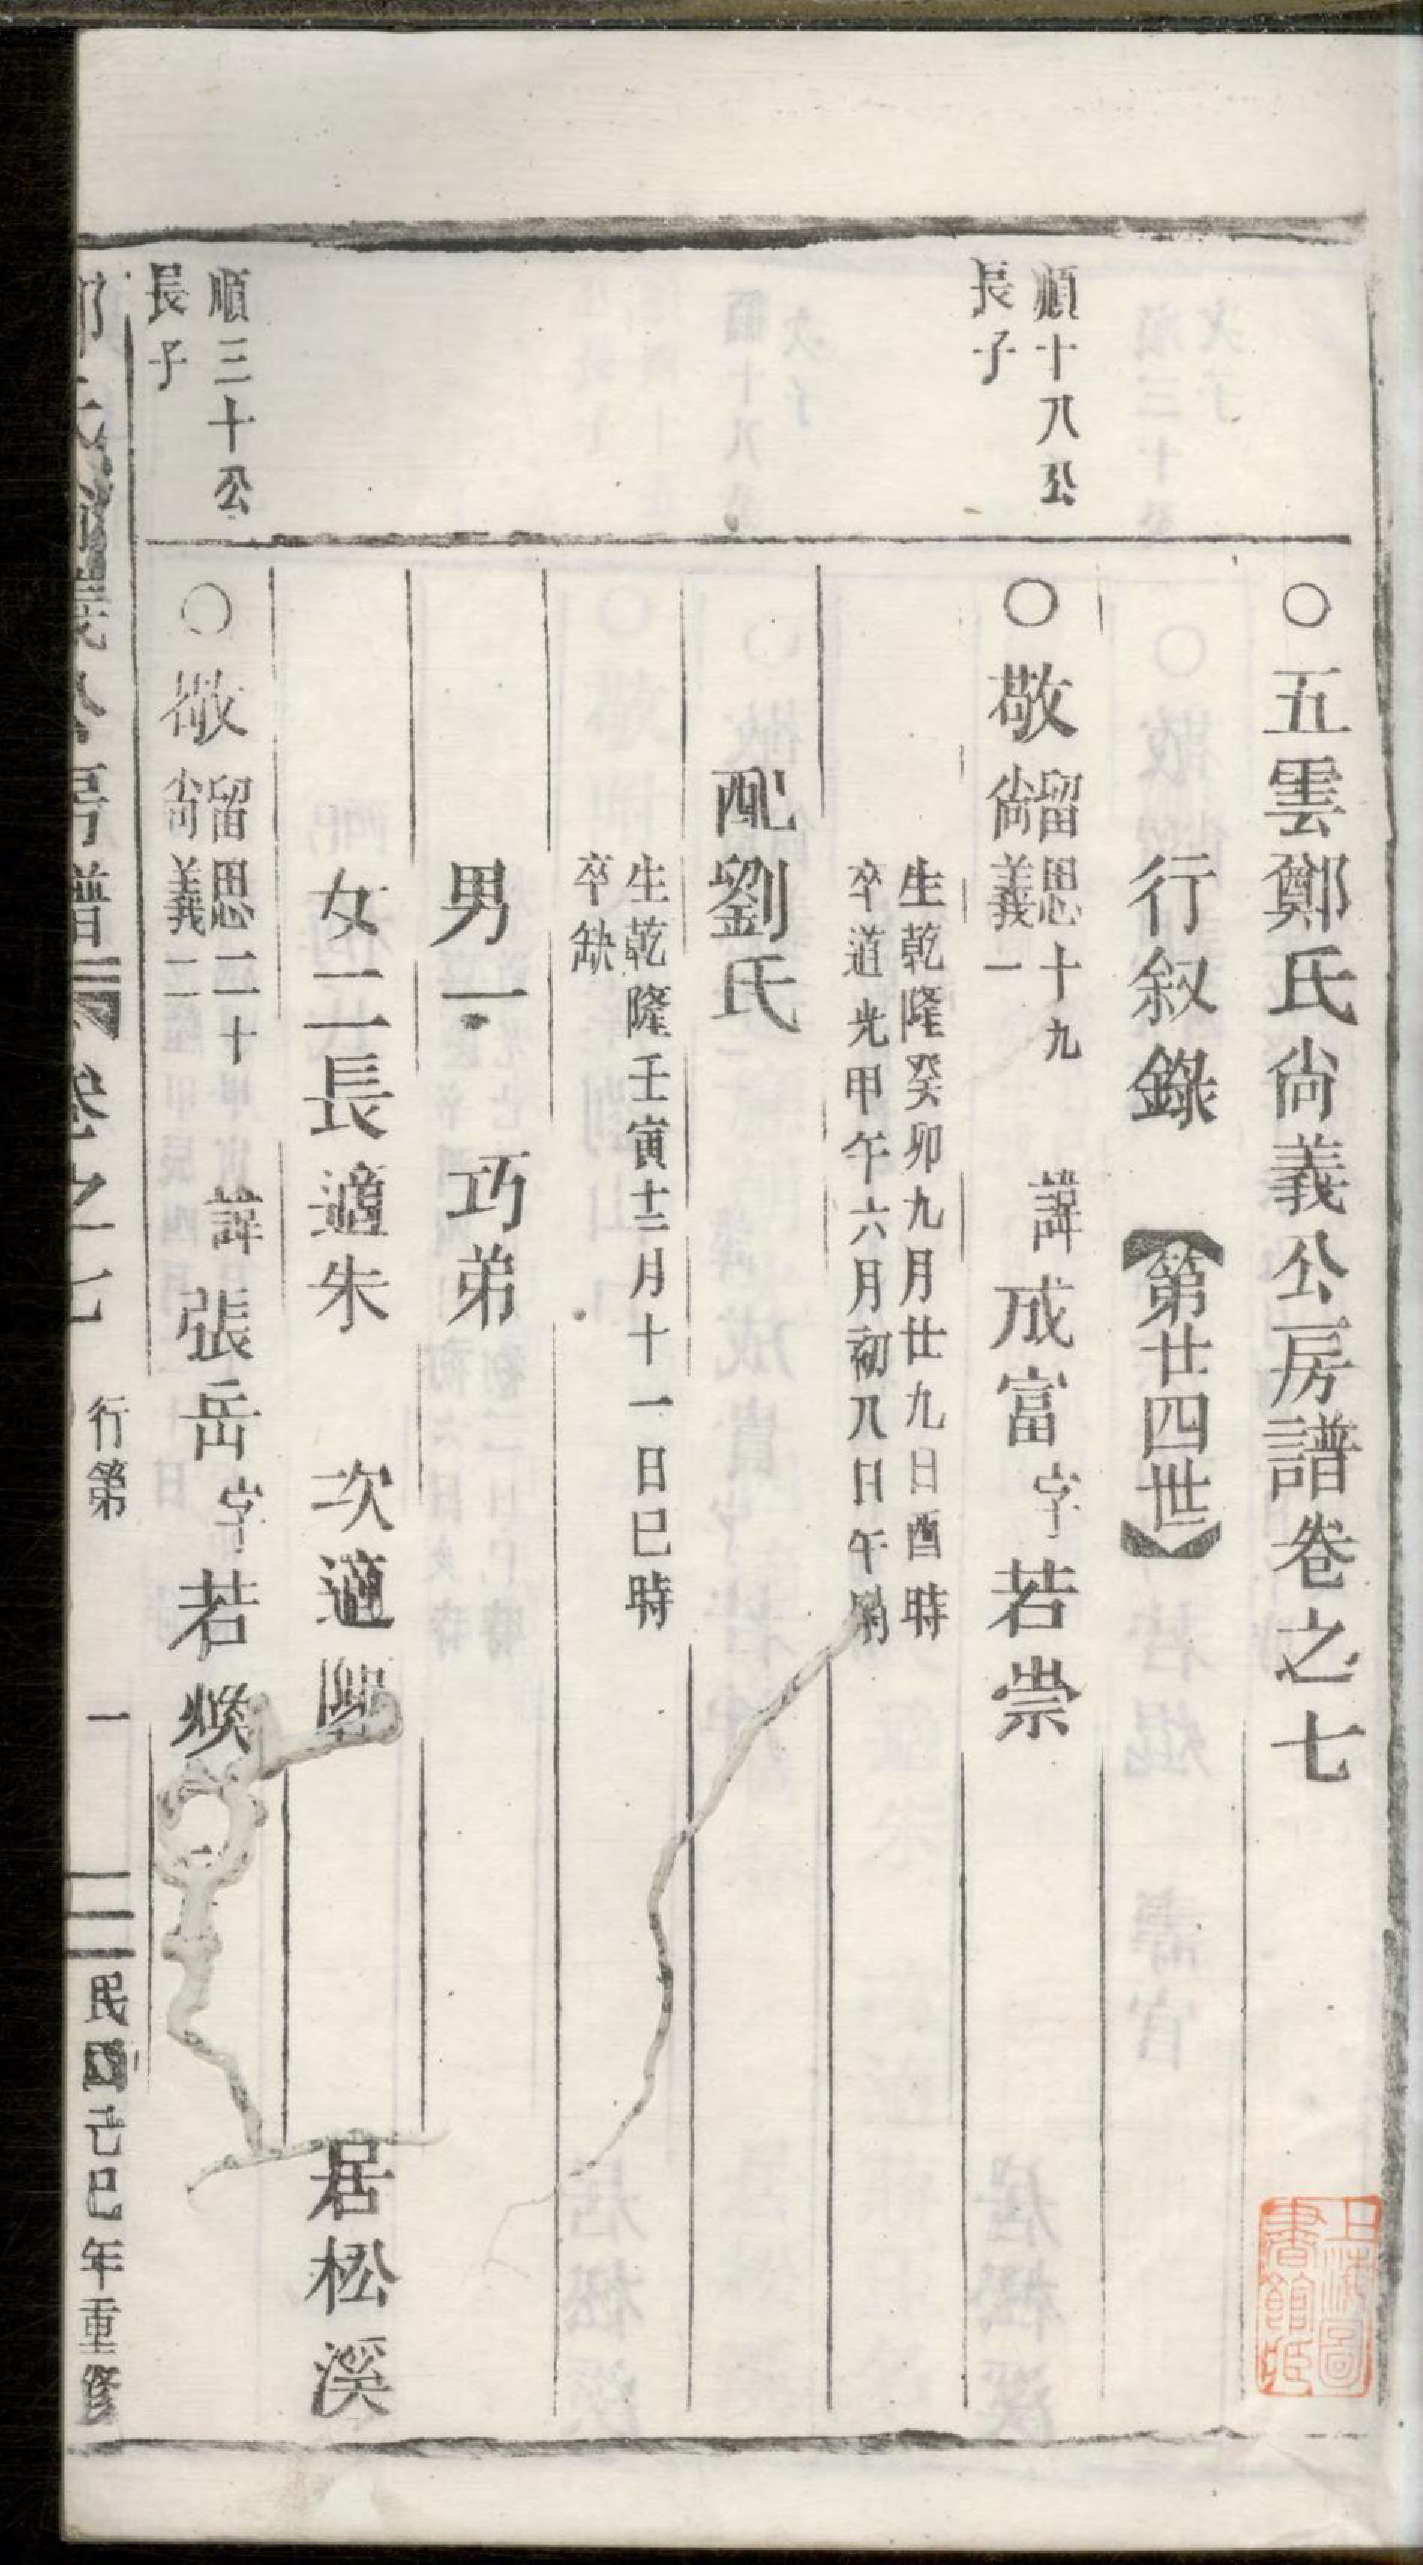 ○五雲鄭氏尚義公房譜卷之七
行叙錄 【第廿四世】
順十八公
長子
○敬 留思十九
尚義一
諱成富字若崇
生乾隆癸卯九月廿九日酉時
卒道光甲午六月初八日午時
配劉氏
生乾隆壬寅十二月十一日巳時
卒缺
男一 巧弟
女二長適朱 次適 居松溪
順三十公
長子
○敬 留思二十
尚義二
諱張岳字若煥
鄭氏尚義公房譜 卷之七 行第 一 民國己巳年重修
上海圖
書館藏